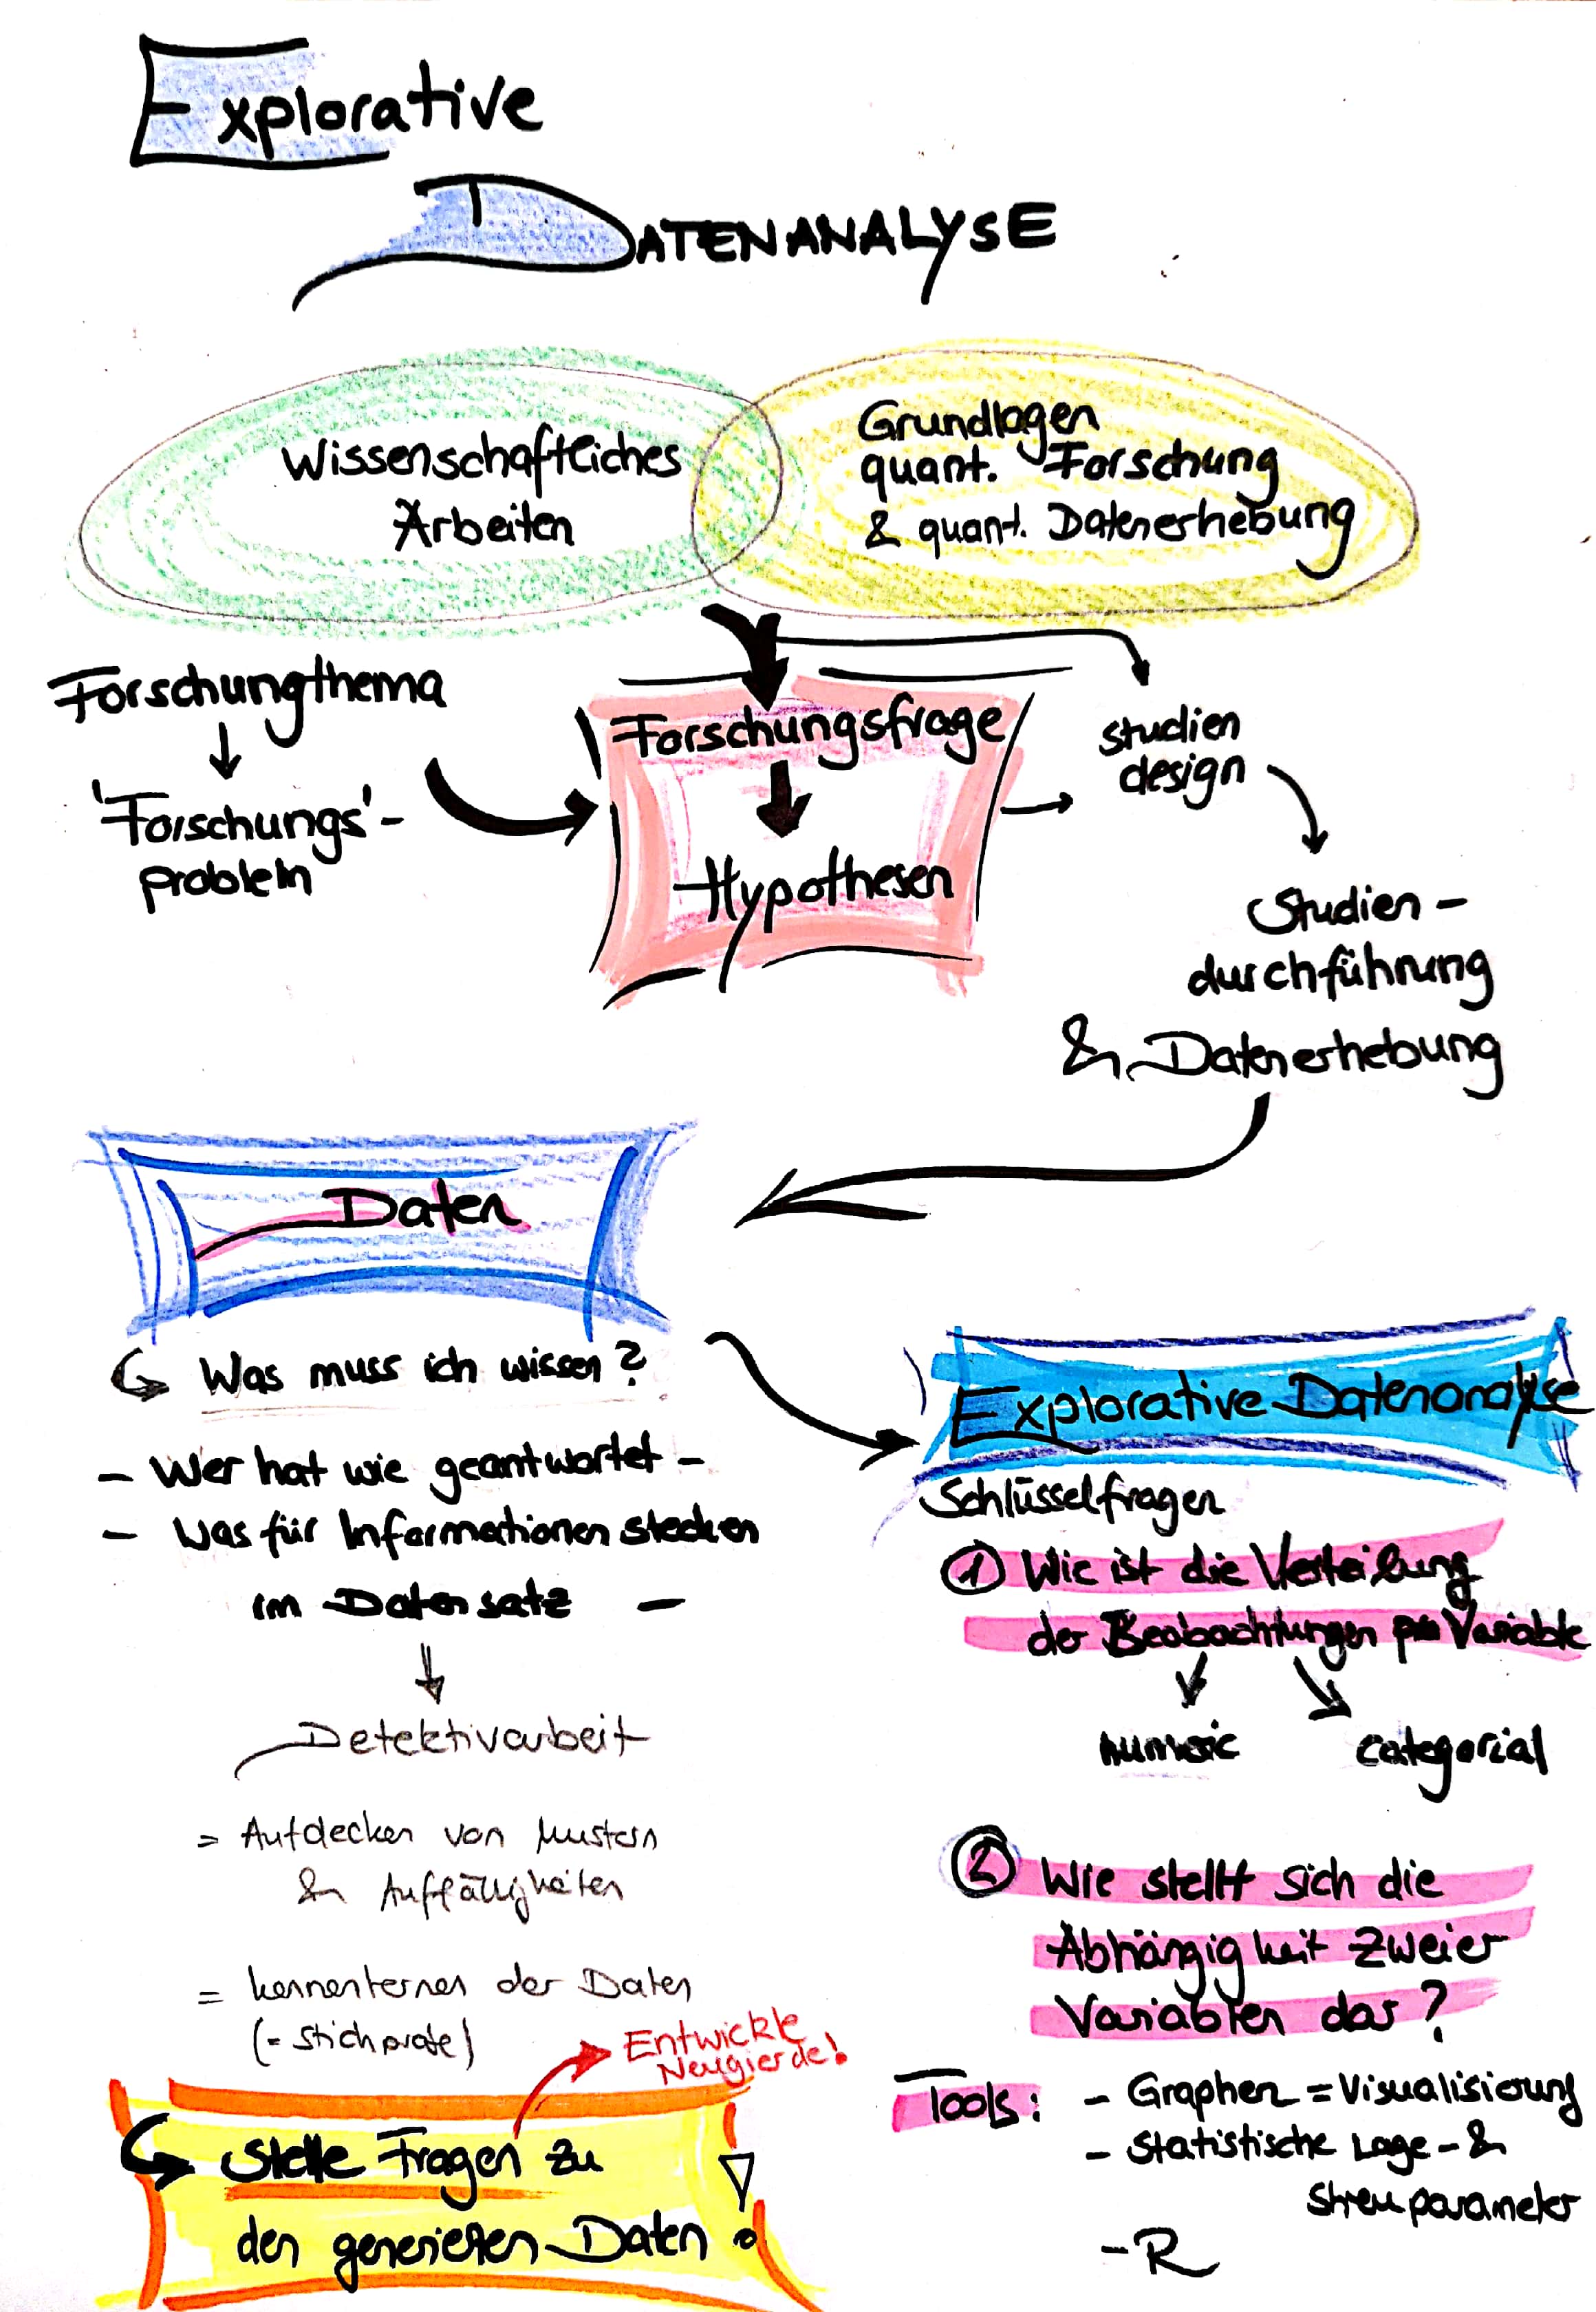 Explorative
DATENANALYSE
Wissenschaftliches
Arbeiten
Grundlagen
quant. Forschung
& quant. Datenerhebung
Forschungthema
'Forschungs'-
problem
Forschungsfrage
Hypothesen
studien
design
Studien-
durchführung
& Datenerhebung
Daten
Was muss ich wissen?
- Wer hat wie geantwortet -
- Was für Informationen stecken
im Datensatz -
Detektivarbeit
= Aufdecken von Mustern
& Auffälligkeiten
= kennenlernen der Daten
(= Stichprobe)
Entwickle
Neugierde!
Stelle Fragen zu
den generierten Daten !
Explorative Datenanalyse
Schlüsselfragen
① Wie ist die Verteilung
der Beobachtungen pro Variable
numeric categorial
② Wie stellt sich die
Abhängigkeit zweier
Variablen dar?
Tools: - Graphen = Visualisierung
- Statistische Lage- &
Streuparameter
- R